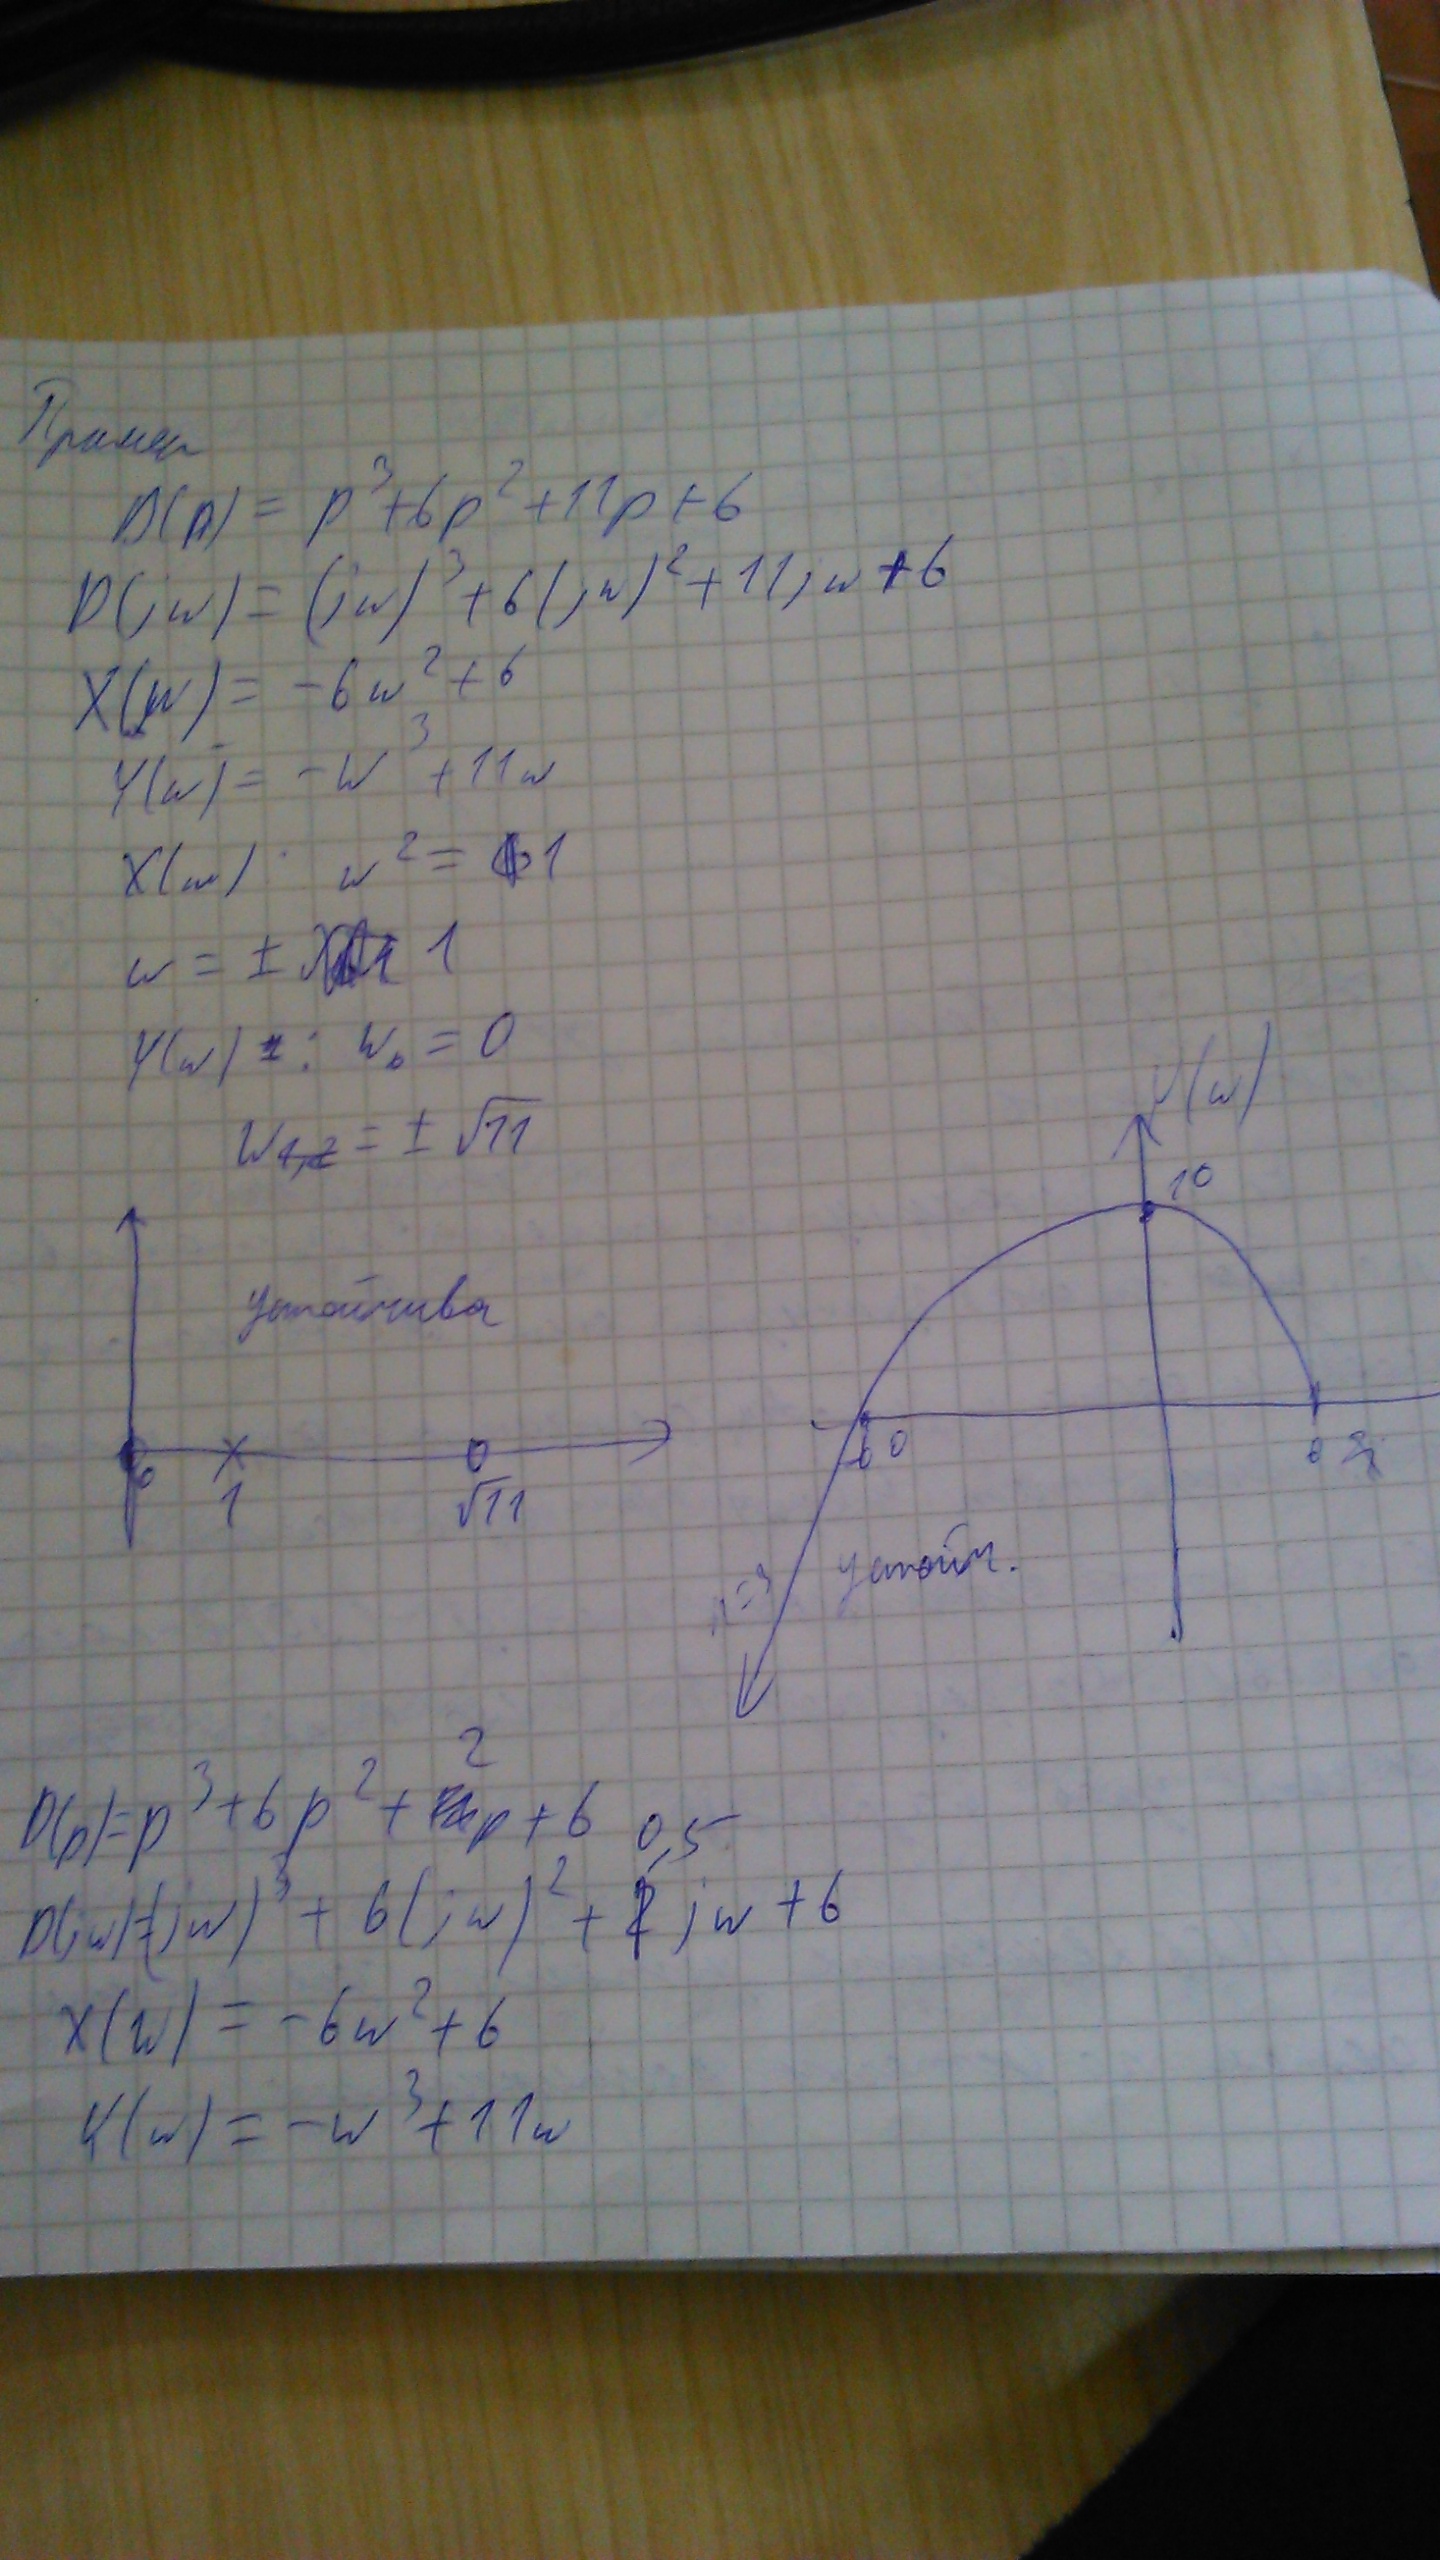 Пример
D(p) = p³+6p²+11p+6
D(jw) = (jw)³+6(jw)²+11jw+6
X(w) = -6w²+6
Y(w) = -w³+11w
X(w): w² = 1
w = ± 1
Y(w): w₀ = 0
w₁,₂ = ± √11
устойчива
0 1 √11
Y(w)
10
-60
6
n=3
устойч.
D(p)=p³+6p²+2p+6
0,5
D(jw)=(jw)³+6(jw)²+ jw+6
X(w) = -6w²+6
Y(w) = -w³+11w